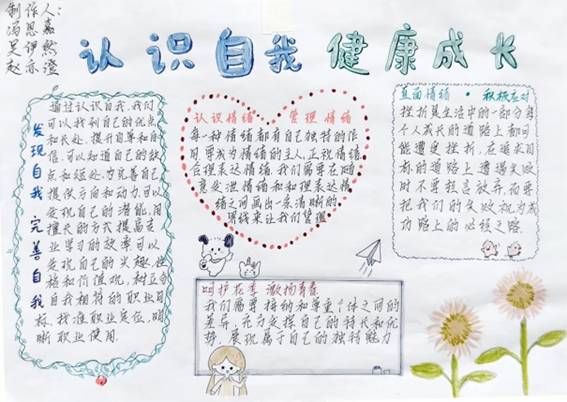 制作人：
冯思嘉
吴伊然
赵亦澄
认识自我 健康成长
发现自我 完善自我
通过认识自我，我们
可以找到自己的优点
和长处，提升自尊和自
信，可以知道自己的缺
点和短处，为完善自己
提供方向和动力，可以
发现自己的潜能，用
擅长的方式提高走
业学习的效率，可以
发现自己的兴趣、性
格和价值观，树立与
自我相符的职业目
标，找准职业定位，明
晰职业使用.
认识情绪 管理情绪
每一种情绪都有自己独特的作
用，要成为情绪的主人，正视情绪，
合理表达情绪，我们需要在随
意发泄情绪和和理表达情
绪之间画出一条清晰的
界线来让我们
直面情绪·积极应对
挫折是生活中的一部分，每
个人成长的道路上都可
能遭受挫折，在追求目
标的道路上遭遇失败
时不要轻言放弃，而要
把我们的失败视为成
功路上的必经之路.
呵护花季 激扬青春
我们需要接纳和尊重个体之间的
差异，充分发挥自己的特长和优
势，展现属于自己的独特魅力